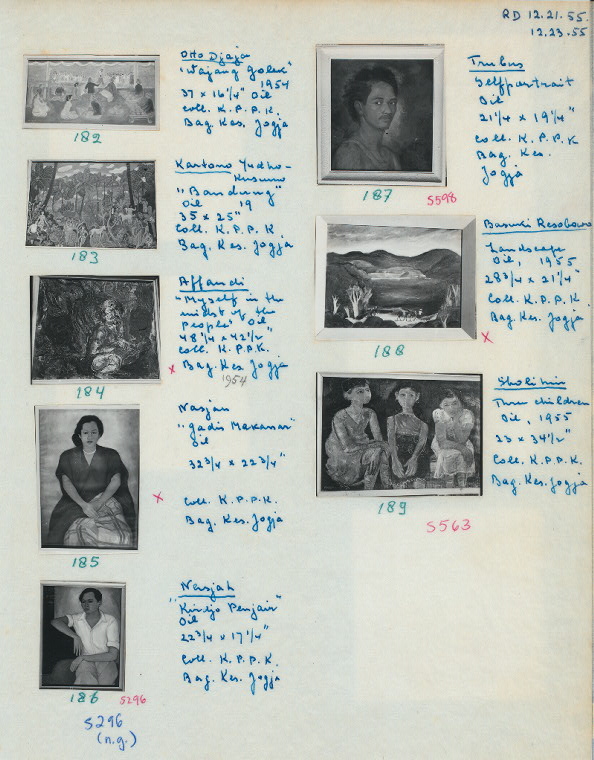 RD 12.21.55.
12.23.55
Otto Djaja
"Wajang Golek"
1954
37 x 16 1/4" Oil
Coll. K.P.P.K.
Bag. Kes. Jogja
182
Kartono Yudho-
Kusumo
"Bandung"
Oil 19
35 x 25"
Coll. K.P.P.K.
Bag. Kes. Jogja
183
Affandi
"Myself in the
midst of the
People" Oil
48 1/4 x 42 1/2"
Coll. K.P.P.K.
x Bag. Kes Jogja
1954
184
Nasjah
"Gadis Makassar"
Oil
32 3/4 x 22 3/4"
x Coll. K.P.P.K.
Bag. Kes. Jogja
185
Nasjah
Oil
22 3/4 x 17 1/4"
Coll. K.P.P.K.
Bag. Kes. Jogja
186 S296
S296
(n.g.)
Trubus
Selfportrait
Oil
21 1/4 x 19 1/4"
Coll. K.P.P.K
Bag. Kes.
Jogja
187 S598
Basuki Resobowo
Landscape
Oil, 1955
28 3/4 x 21 1/4"
Coll. K.P.P.K.
Bag. Kes. Jogja
188 x
Sholihin
Three children
Oil, 1955
23 x 34 1/2"
Coll. K.P.P.K.
Bag. Kes. Jogja
189
S563